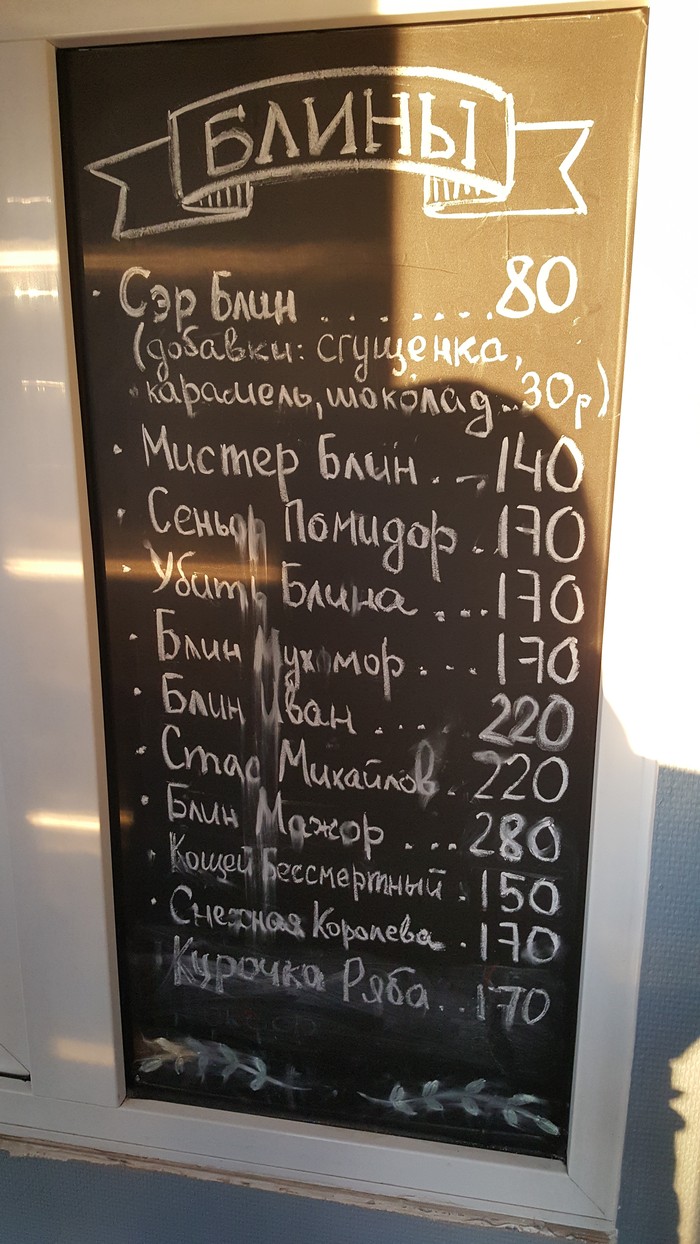 БЛИНЫ
· Сэр Блин ........80
(добавки: сгущенка,
карамель, шоколад..30р)
· Мистер Блин ...140
· Сеньор Помидор ..170
· Убить Блина ....170
· Блин Мухомор ....170
· Блин Иван ....220
· Стас Михайлов.220
· Блин Мажор ....280
· Кощей Бессмертный.150
· Снежная Королева.170
Курочка Ряба...170